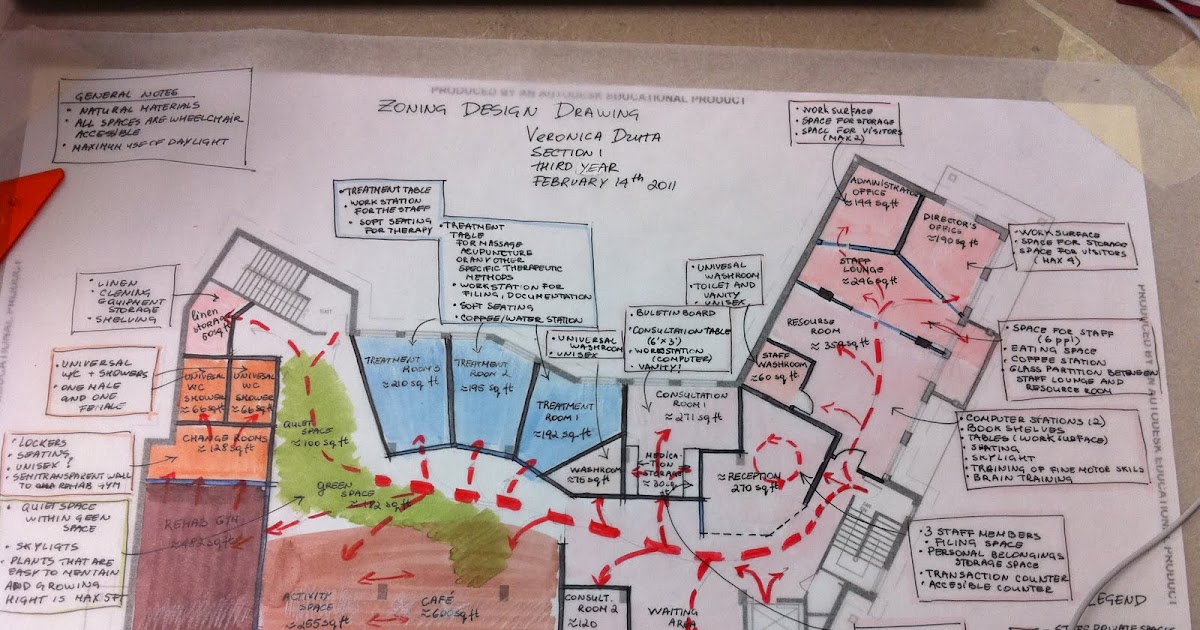 PRODUCED BY AN AUTODESK EDUCATIONAL PRODUCT
ZONING DESIGN DRAWING
VERONICA DZUTA
SECTION 1
THIRD YEAR
FEBRUARY 14th 2011
GENERAL NOTES
• NATURAL MATERIALS
• ALL SPACES ARE WHEELCHAIR
ACCESIBLE
• MAXIMUM USE OF DAYLIGHT
• TREATMENT TABLE
• WORK STATION
FOR THE STAFF
• SOFT SEATING
FOR THERAPY
• TREATMENT
TABLE
FOR MASSAGE
ACUPUNCTURE
OR ANY OTHER
SPECIFIC THERAPEUTIC
METHODS
• WORKSTATION FOR
FILING, DOCUMENTATION
• SOFT SEATING
• COFFEE/WATER STATION
• WORK SURFACE
• SPACE FOR STORAGE
• SPACE FOR VISITORS
(MAX 2)
ADMINISTRATOR
OFFICE
≈144 sq ft
DIRECTOR'S
OFFICE
≈190 sq ft
• WORK SURFACE
• SPACE FOR STORAGE
• SPACE FOR VISITORS
(MAX 4)
STAFF
LOUNGE
≈246 sq ft
• UNIVESAL
WASHROOM
• TOILET AND
VANITY
• UNISEX
• LINEN
• CLENING
EQUIPMENT
STORAGE
• SHELVING
linen
storage
60 sq ft
EXIT
• UNIVERSAL
WASHROOM
• UNISEX
• BULETIN BOARD
• CONSULTATION TABLE
(6'x3')
• WORKSTATION
(COMPUTER)
• VANITY!
RESOURSE
ROOM
STAFF
WASHROOM
≈60 sq ft
• SPACE FOR STAFF
(6 ppl)
• EATING SPACE
• COFFEE STATION
• GLASS PARTITION BETWEEN
STAFF LOUNGE AND
RESOURCE ROOM
• UNIVERSAL
WC + SHOWERS
• ONE MALE
AND ONE
FEMALE
UNIVESAL
WC
SHOWER
≈66 sq ft
UNIVESAL
WC
SHOWER
≈66 sq ft
TREATMENT
ROOM 3
≈210 sq ft
TREATMENT
ROOM 2
≈195 sq ft
TREATMENT
ROOM 1
≈192 sq ft
CONSULTATION
ROOM 1
≈271 sq ft
• COMPUTER STATIONS (2)
• BOOK SHELVES
• TABLES (WORK SURFACE)
• SEATING
• SKYLIGHT
• TRAINING OF FINE MOTOR SKILS
• BRAIN TRAINING
• LOCKERS
• SEATING
• UNISEX?
• SEMITRANSPARENT WALL
TO REHAB GYM
CHANGE ROOMS
≈128 sq ft
QUIET
SPACE
≈100 sq ft
GREEN
SPACE
WASHROOM
≈76 sq ft
MEDICA
TION
STORAGE
≈ RECEPTION
270 sq ft
• QUIET SPACE
WITHIN GEEN
SPACE
• SKYLIGTS
• PLANTS THAT ARE
EASY TO MENTAIN
AND GROWING
HIGHT IS MAX 5FT
REHAB GYM
• 3 STAFF MEMBERS
• FILING SPACE
• PERSONAL BELONGINGS
STORAGE SPACE
• TRANSACTION COUNTER
• ACCESIBLE COUNTER
ACTIVITY
SPACE
≈255 sq ft
CAFÉ
≈600 sq ft
CONSULT.
ROOM 2
≈120
WAITING
AREA
LEGEND
PRODUCED BY AN AUTODESK EDUCATIONAL PRODUCT